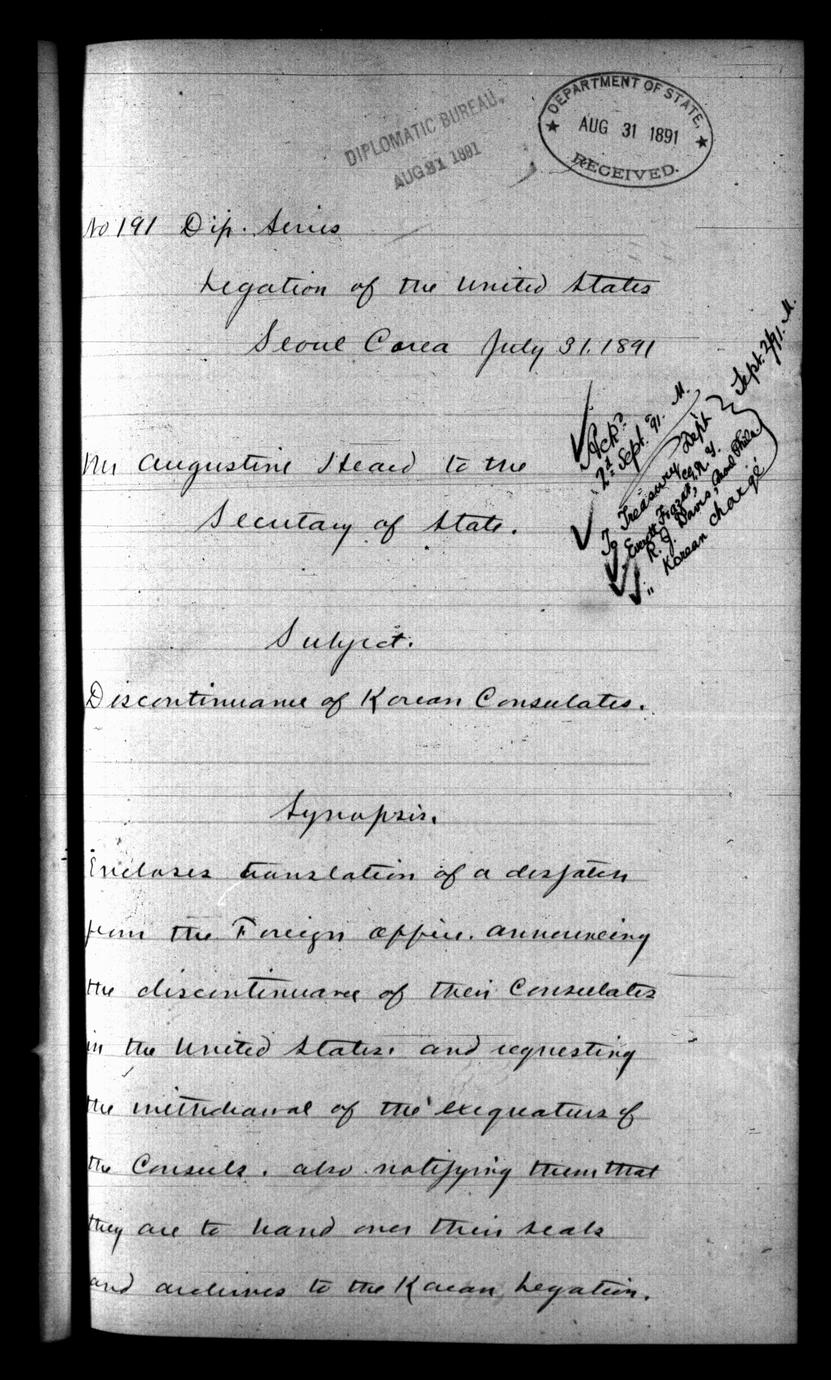 DIPLOMATIC BUREAU,
AUG 31 1891
DEPARTMENT OF STATE,
AUG 31 1891
RECEIVED.
No 191 Dip. Series
Legation of the United States
Seoul Corea July 31. 1891
Ackd
2d Sept. '91. M.
To Treasury Dept
" Everett Frazar, N.Y.
" R. J. Davis, Consul Phila.
" Korean chargé
Sept. 2/91. M.
Mr Augustine Heard to the
Secretary of State.
Subject.
Discontinuance of Korean Consulates.
Synopsis.
Encloses translation of a despatch
from the Foreign Office. announcing
the discontinuance of their Consulates
in the United States. and requesting
the withdrawal of the exequaturs of
the Consuls. also notifying them that
they are to hand over their seals
and archives to the Korean Legation.